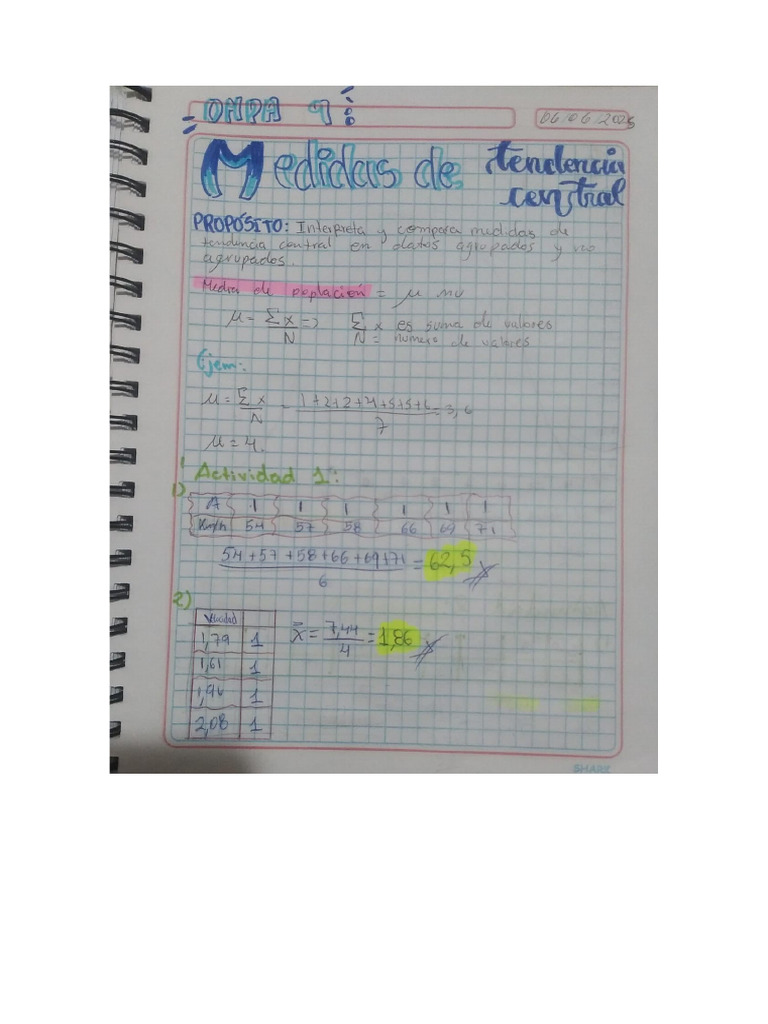 ONPA 9
06/06/2025
Medidas de tendencia central
PROPÓSITO: Interpreta y compara medidas de
tendencia central en datos agrupados y no
agrupados.
Media de poplación = μ mu
μ = Σx/N => Σx es suma de valores
N = número de valores
Ejem:
μ = Σx/N = 1+2+2+4+5+5+6/7 = 3,6
μ = 4.
Actividad 1:
1)
A 1 1 1 1 1 1
Km/h 54 57 58 66 69 71
54+57+58+66+69+71/6 = 62,5
2)
Velocidad
x̄ = 7,44/4 = 1,86
1,79 1
1,61 1
1,96 1
2,08 1
SHARK